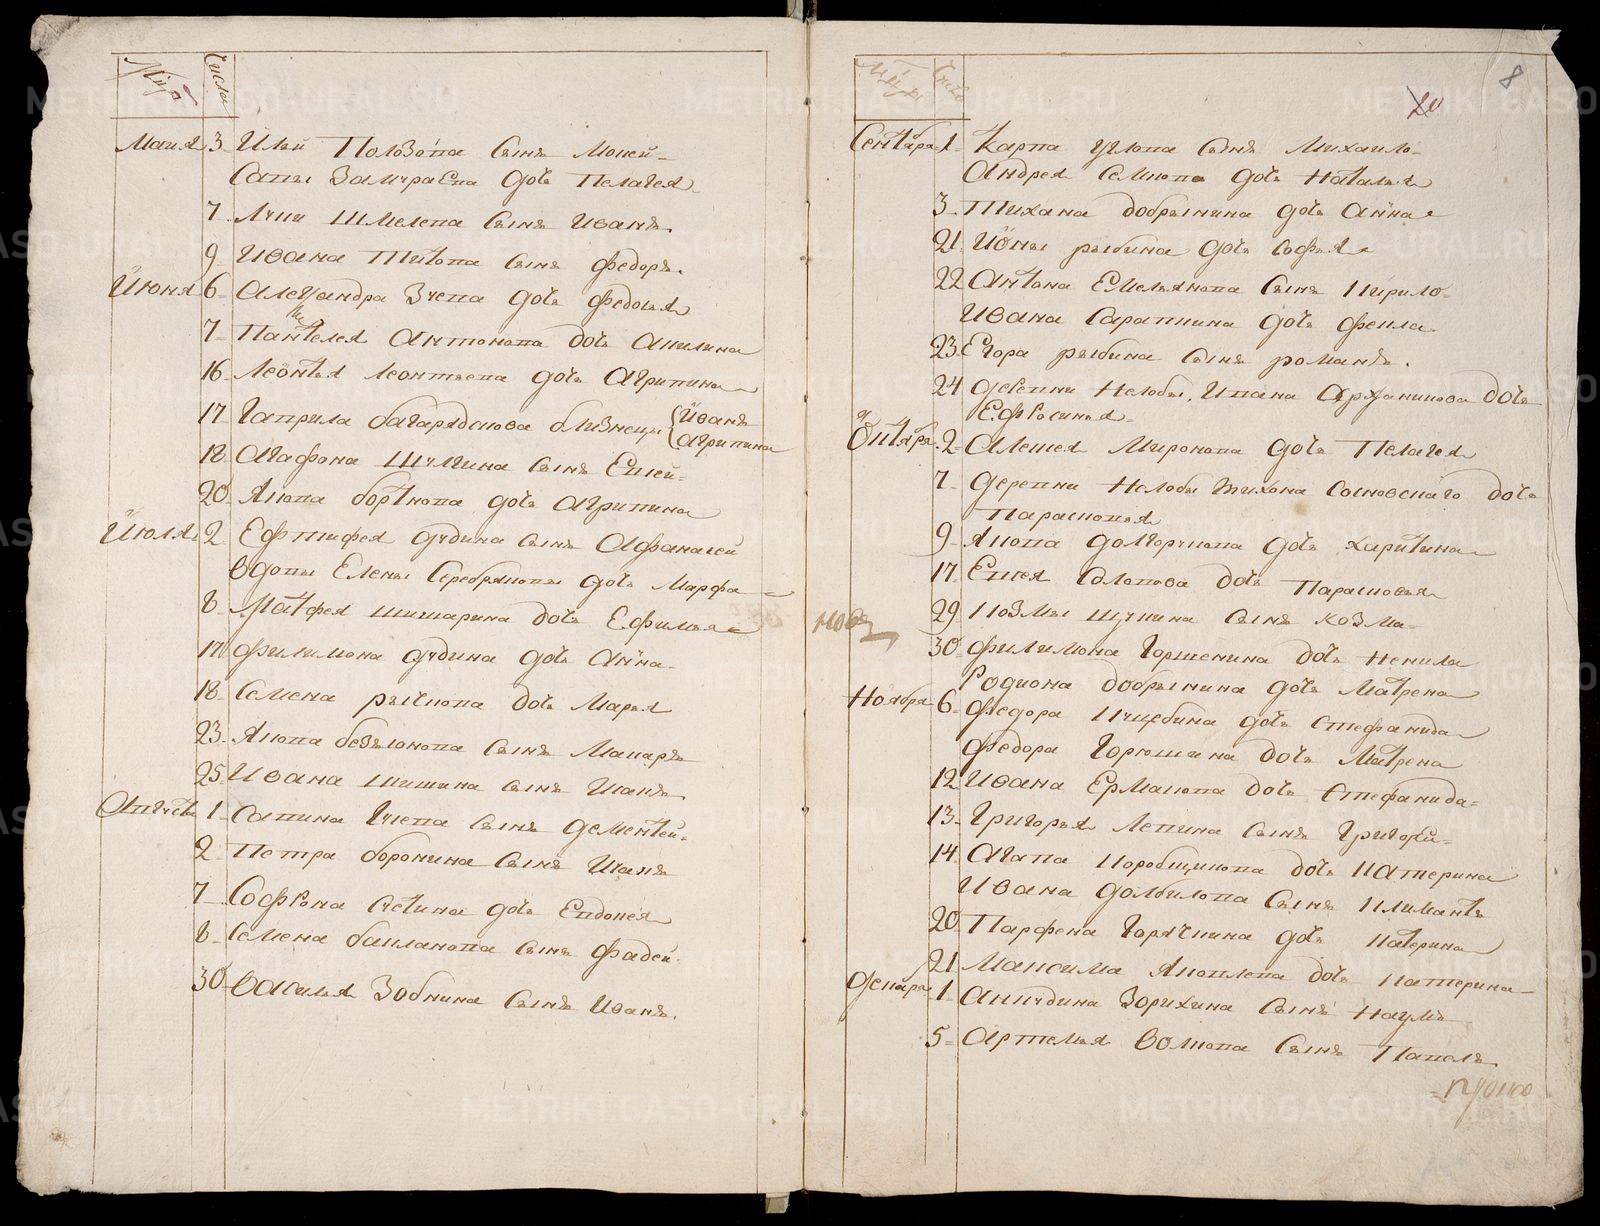 Числа
Маия 3 Ильи Полозова сынъ Мокей
Савы Замураева дочь Пелагея
7 Луки Шмелева сынъ Иванъ
9 Ивана Титова сынъ Федоръ
Июня 6 Александра Зуева дочь Федосья
7 Пантелея Антонова дочь Акилина
16 Леонтья Леонтьева дочь Агрипина
17 Гаврила близнецы Иванъ
Агрипина
18 Агафона Шулгина сынъ Евсей
20 Якова Бортнова дочь Агрипина
Июля 2 Ефтифея Судина сынъ Афанасей
Вдовы Елены Серебряковы дочь Марфа
8 Матфея Шишарина дочь Ефимья
17 Филимона Судина дочь Анна
18 Семена Рычкова дочь Марья
23 Якова сынъ Макаръ
25 Ивана Шишина сынъ
Августа 1 Савина Гуева сынъ Дементей
2 Петра Воронина сынъ
7 Софрона Счетина дочь Евдокея
8 Семена Бакланова сынъ Фадей
30 Василья Зобнина сынъ Иванъ
8
20
Число
Сентября 1 Карпа Углова сынъ Михаило
Андрея Семкова дочь Наталья
3 Тихана Добрынина дочь Анна
21 Ионы Рыбина дочь Софья
22 Антона Емельянова сынъ Кирило
Ивана Сарапкина дочь Фекла
23 Егора Рыбина сынъ Романъ
24 Деревни Нелобы Ивана дочь
Ефросинья
Октября 2 Алексея Миронова дочь Пелагея
7 Деревни Нелобы Тихона Сосновскаго дочь
Парасковья
9 Якова Долгорукова дочь Харитина
17 Евсея дочь Парасковья
29 Козмы Щукина сынъ Козма
30 Филимона Горшенина дочь Ненила
Родиона Добрынина дочь Матрена
Ноября 6 Федора дочь Стефанида
Федора Горюшина дочь Матрена
12 Ивана Ермакова дочь Стефанида
13 Григорья Лепина сынъ Григорей
14 Агапа Коробщикова дочь Катерина
Ивана Долбилова сынъ Климантъ
20 Парфена Горячкина дочь Катерина
21 Максима Яковлева дочь Катерина
Декабря 1 Акиндина Зорихина сынъ Наумъ
5 Артемья Волкова сынъ Павелъ
METRIKI.GASO-URAL.RU